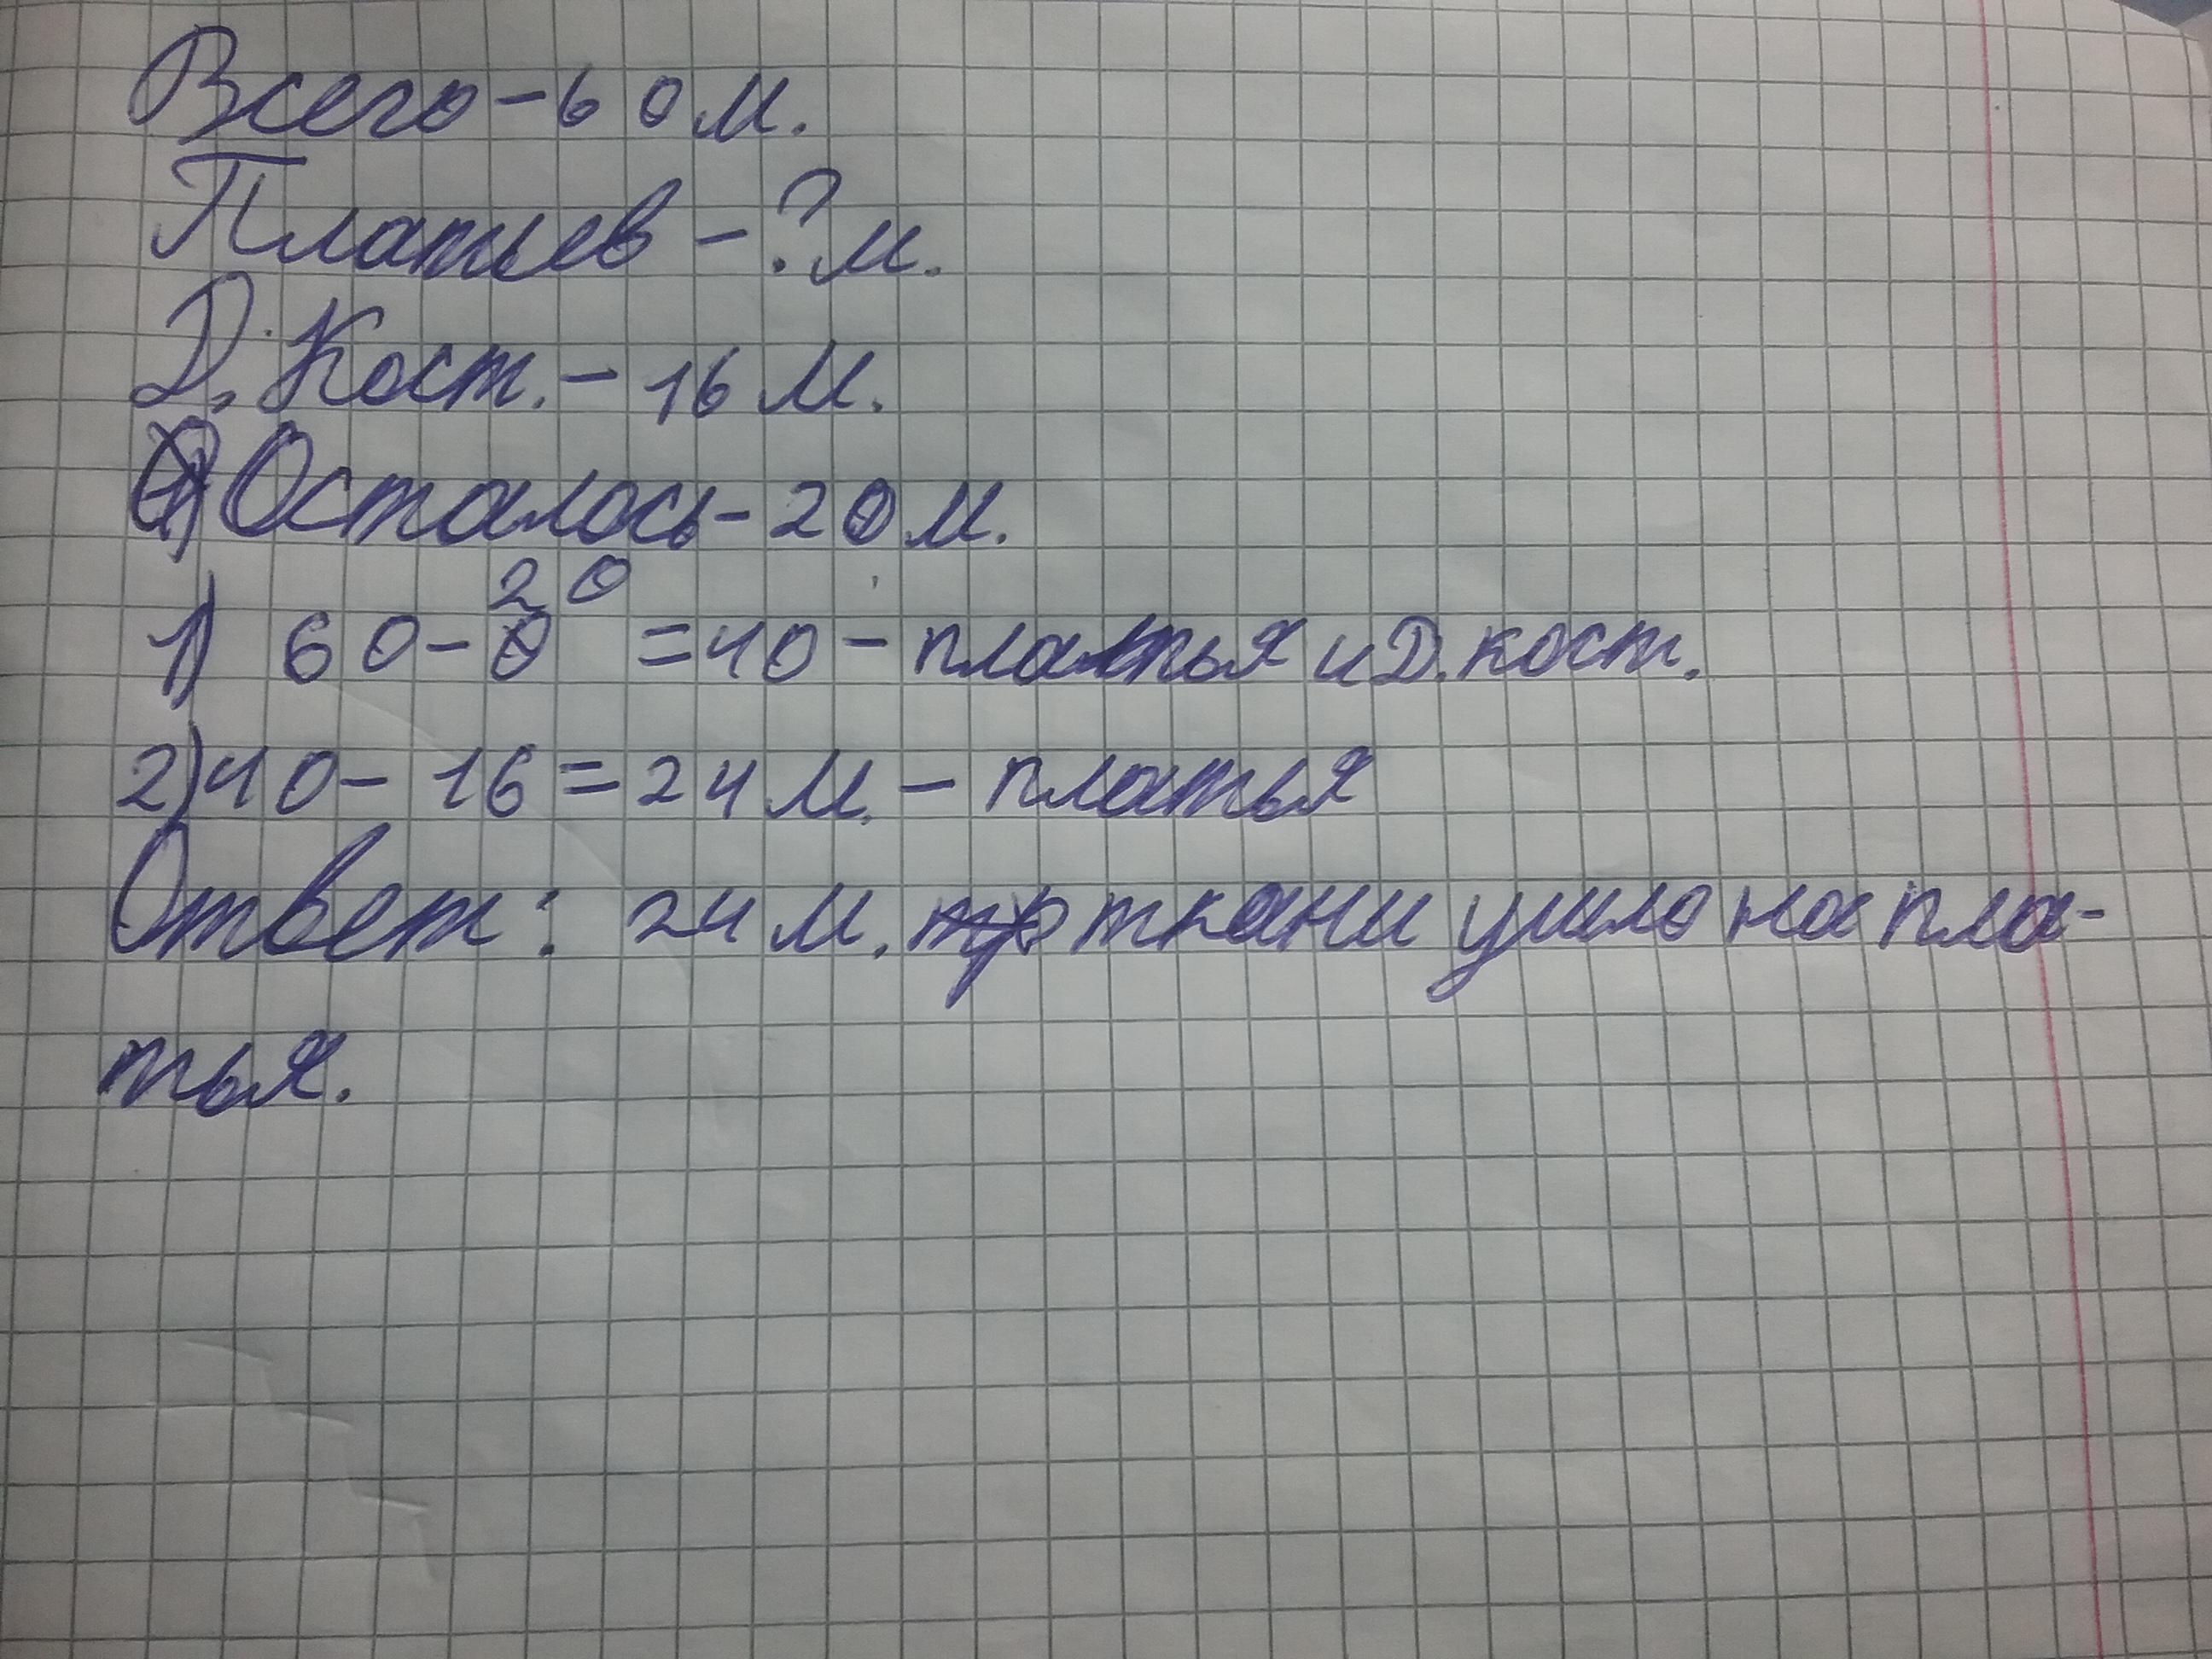 Всего - 60 м.
Платьев - ? м.
Д. Кост. - 16 м.
Осталось - 20 м.
1) 60 - 20 = 40 - платья и Д. кост.
2) 40 - 16 = 24 м. - платья
Ответ: 24 м. ткани ушло на пла-
тья.